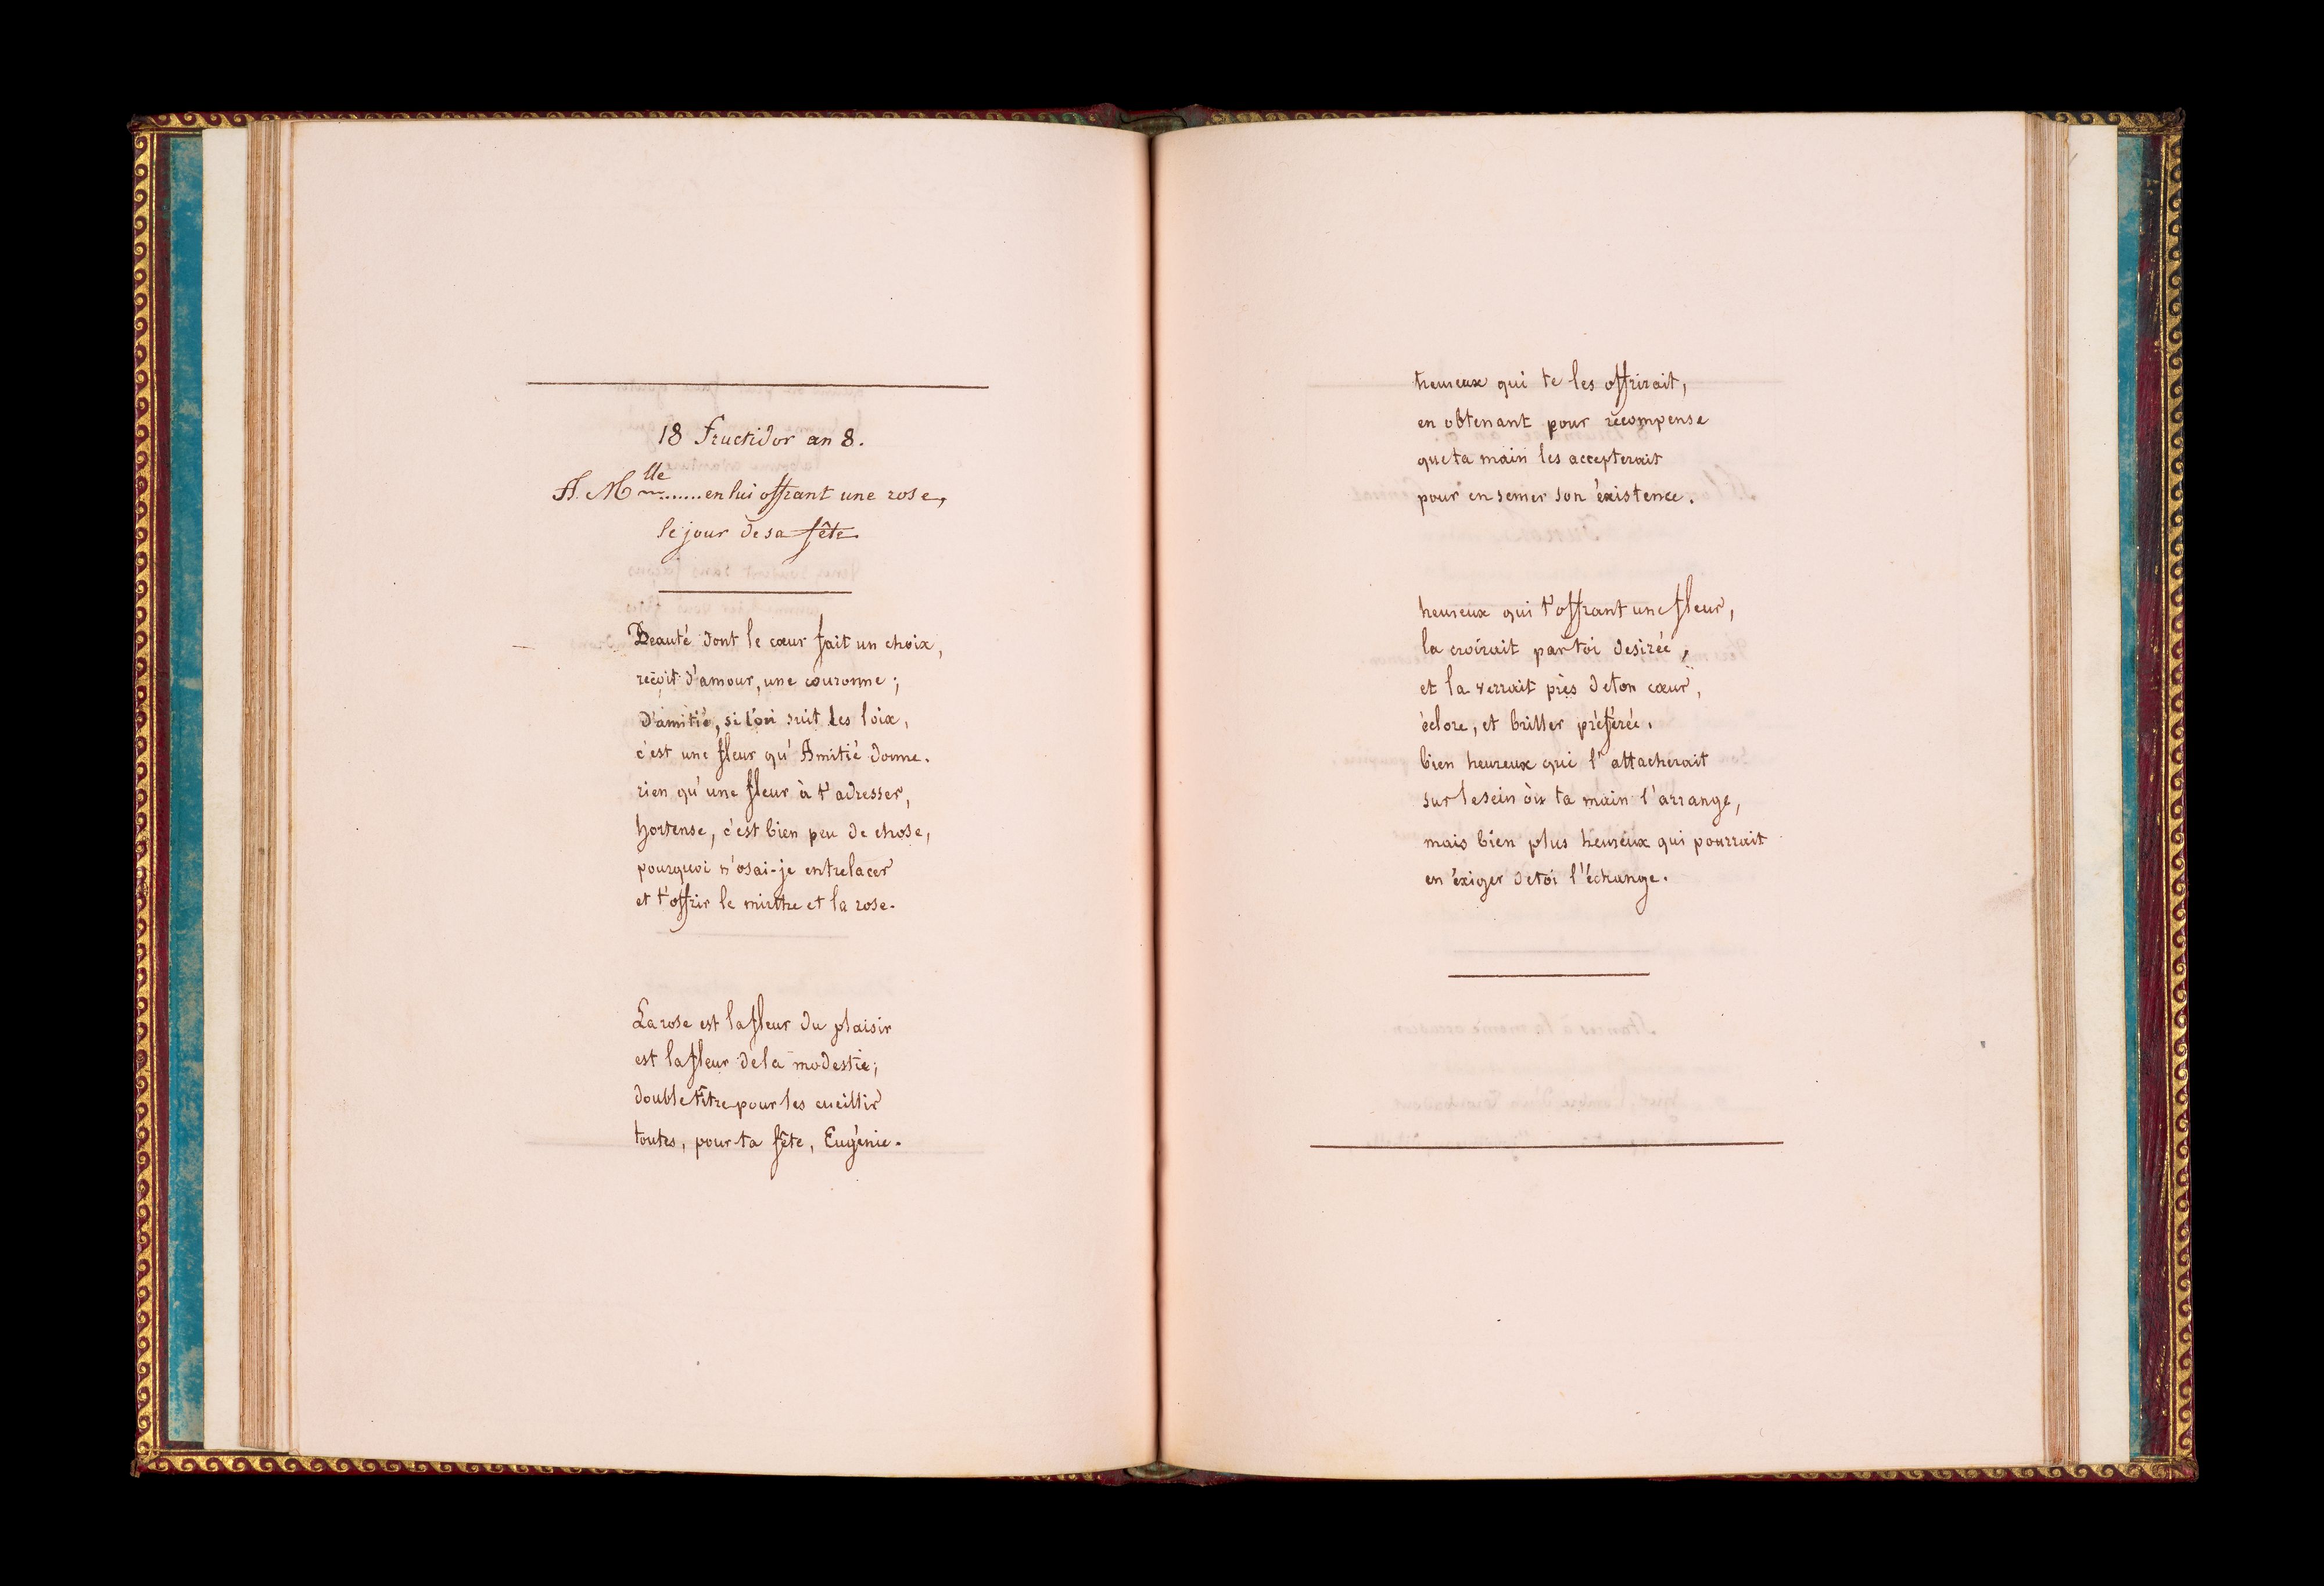 18 fructidor an 8.
A. Mlle ....... en lui offrant une rose,
le jour de sa fête
Beauté dont le cœur fait un choix,
reçoit d'amour, une couronne ;
D'amitié, si l'on suit les loix,
c'est une fleur qu'Amitié donne.
rien qu'une fleur à t'adresser,
hortense, c'est bien peu de chose,
pourquoi n'osai-je entrelacer
et t'offrir le mirthe et la rose.
La rose est la fleur du plaisir
est la fleur de la modestie;
double titre pour les cueillir
toutes, pour ta fête, Eugénie.
heureux qui te les offrirait,
en obtenant pour récompense
que ta main les accepterait
pour en semer son éxistence.
heureux qui t'offrant une fleur,
la croirait par toi desirée,
et la verrait près de ton cœur,
éclore, et briller préférée.
bien heureux qui l'attacherait
sur le sein où ta main l'arrange,
mais bien plus heureux qui pourrait
en éxiger de toi l'échange.